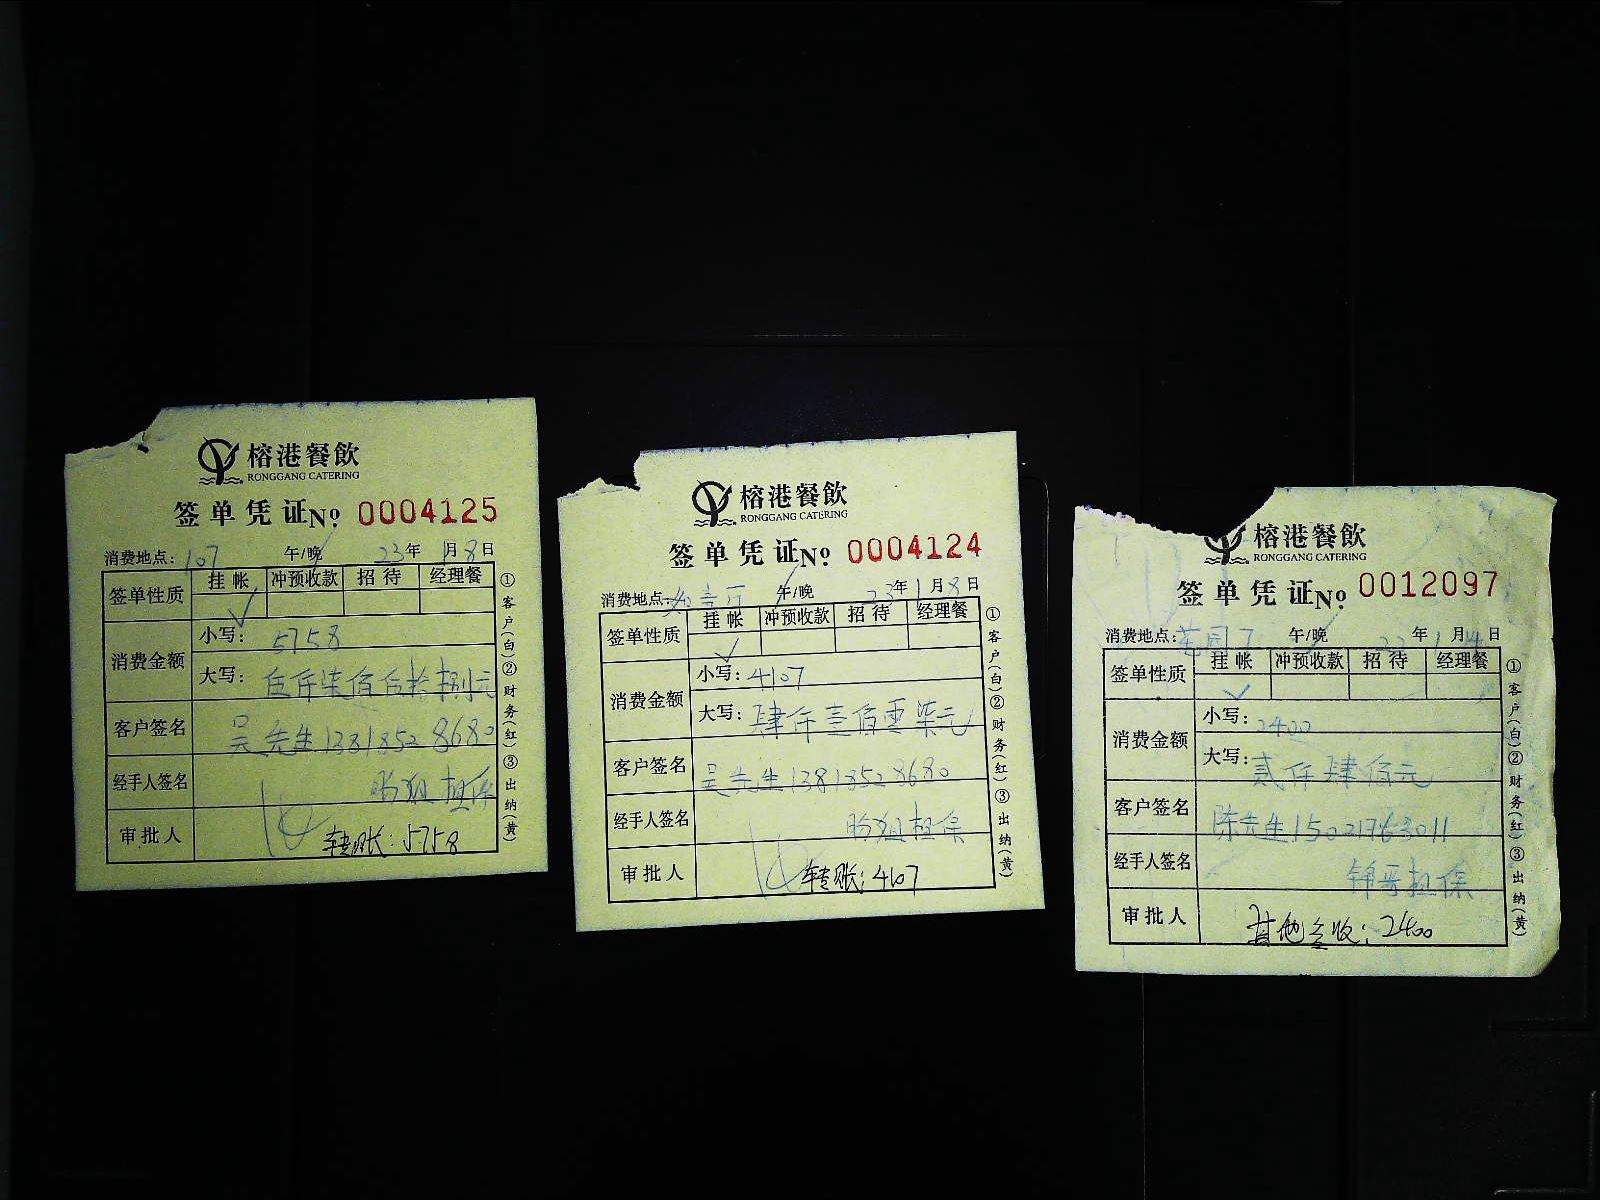 榕港餐飲
RONGGANG CATERING
签单凭证№ 0004125
消费地点: 107 午/晚 23年1月8日
签单性质 挂帐 冲预收款 招待 经理餐
✓
消费金额 小写: 5758
大写: 伍仟柒佰伍拾捌元
客户签名 吴先生 13818528680
经手人签名 担保
审批人 转账: 5758
①客户(白)②财务(红)③出纳(黄)
榕港餐飲
RONGGANG CATERING
签单凭证№ 0004124
消费地点: 午/晚 23年1月8日
签单性质 挂帐 冲预收款 招待 经理餐
✓
消费金额 小写: 4107
大写: 肆仟壹佰零柒元
客户签名 吴先生 13818528680
经手人签名 担保
审批人 转账: 4107
①客户(白)②财务(红)③出纳(黄)
榕港餐飲
RONGGANG CATERING
签单凭证№ 0012097
消费地点: 午/晚 23年1月14日
签单性质 挂帐 冲预收款 招待 经理餐
✓
消费金额 小写: 2400
大写: 贰仟肆佰元
客户签名 陈先生 15021763011
经手人签名 锦哥担保
审批人 其他应收: 2400
①客户(白)②财务(红)③出纳(黄)